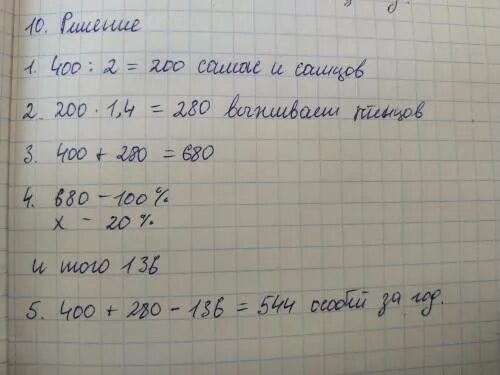 10. Решение
1. 400 : 2 = 200 самок и самцов
2. 200 · 1,4 = 280 выживает птенцов
3. 400 + 280 = 680
4. 680 - 100%
x - 20%
и того 136
5. 400 + 280 - 136 = 544 особей за год.